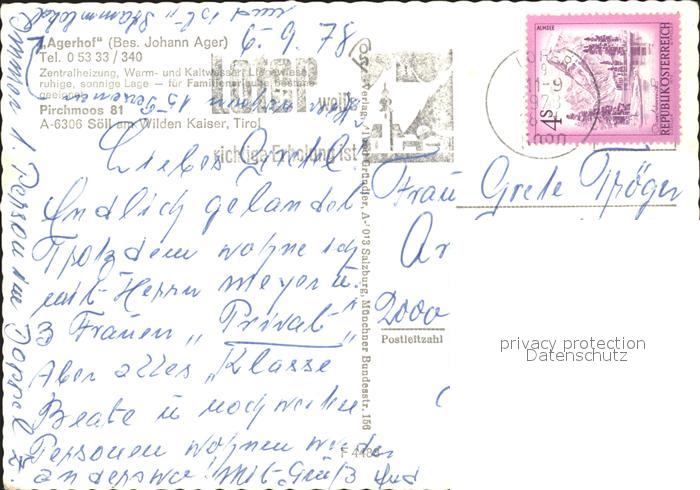 „Agerhof" (Bes. Johann Ager)
Tel. 0 53 33 / 340
Zentralheizung, Warm- und Kaltwasser, Liegewiese,
ruhige, sonnige Lage - für Familien
geeignet
Pirchmoos 81
A-6306 Söll am Wilden Kaiser, Tirol
6.9.78
LOIPP weiß
richtige Erholung ist
ALMSEE
4s
REPUBLIK ÖSTERREICH
11-9
Endlich gelandet
Trotzdem wohne ich
mit Herrn Meyer u.
3 Frauen „Privat"
Aber alles „Klasse
Beate u noch weitere
Personen wohnen wieder
anderswo! Mit Gruß und
15 Personen
und ist „Stammlokal
1 Person im Doppel Z
Frau Grete Tröger
2000
Postleitzahl
A-5013 Salzburg, Münchner Bundesstr. 156
privacy protection
Datenschutz